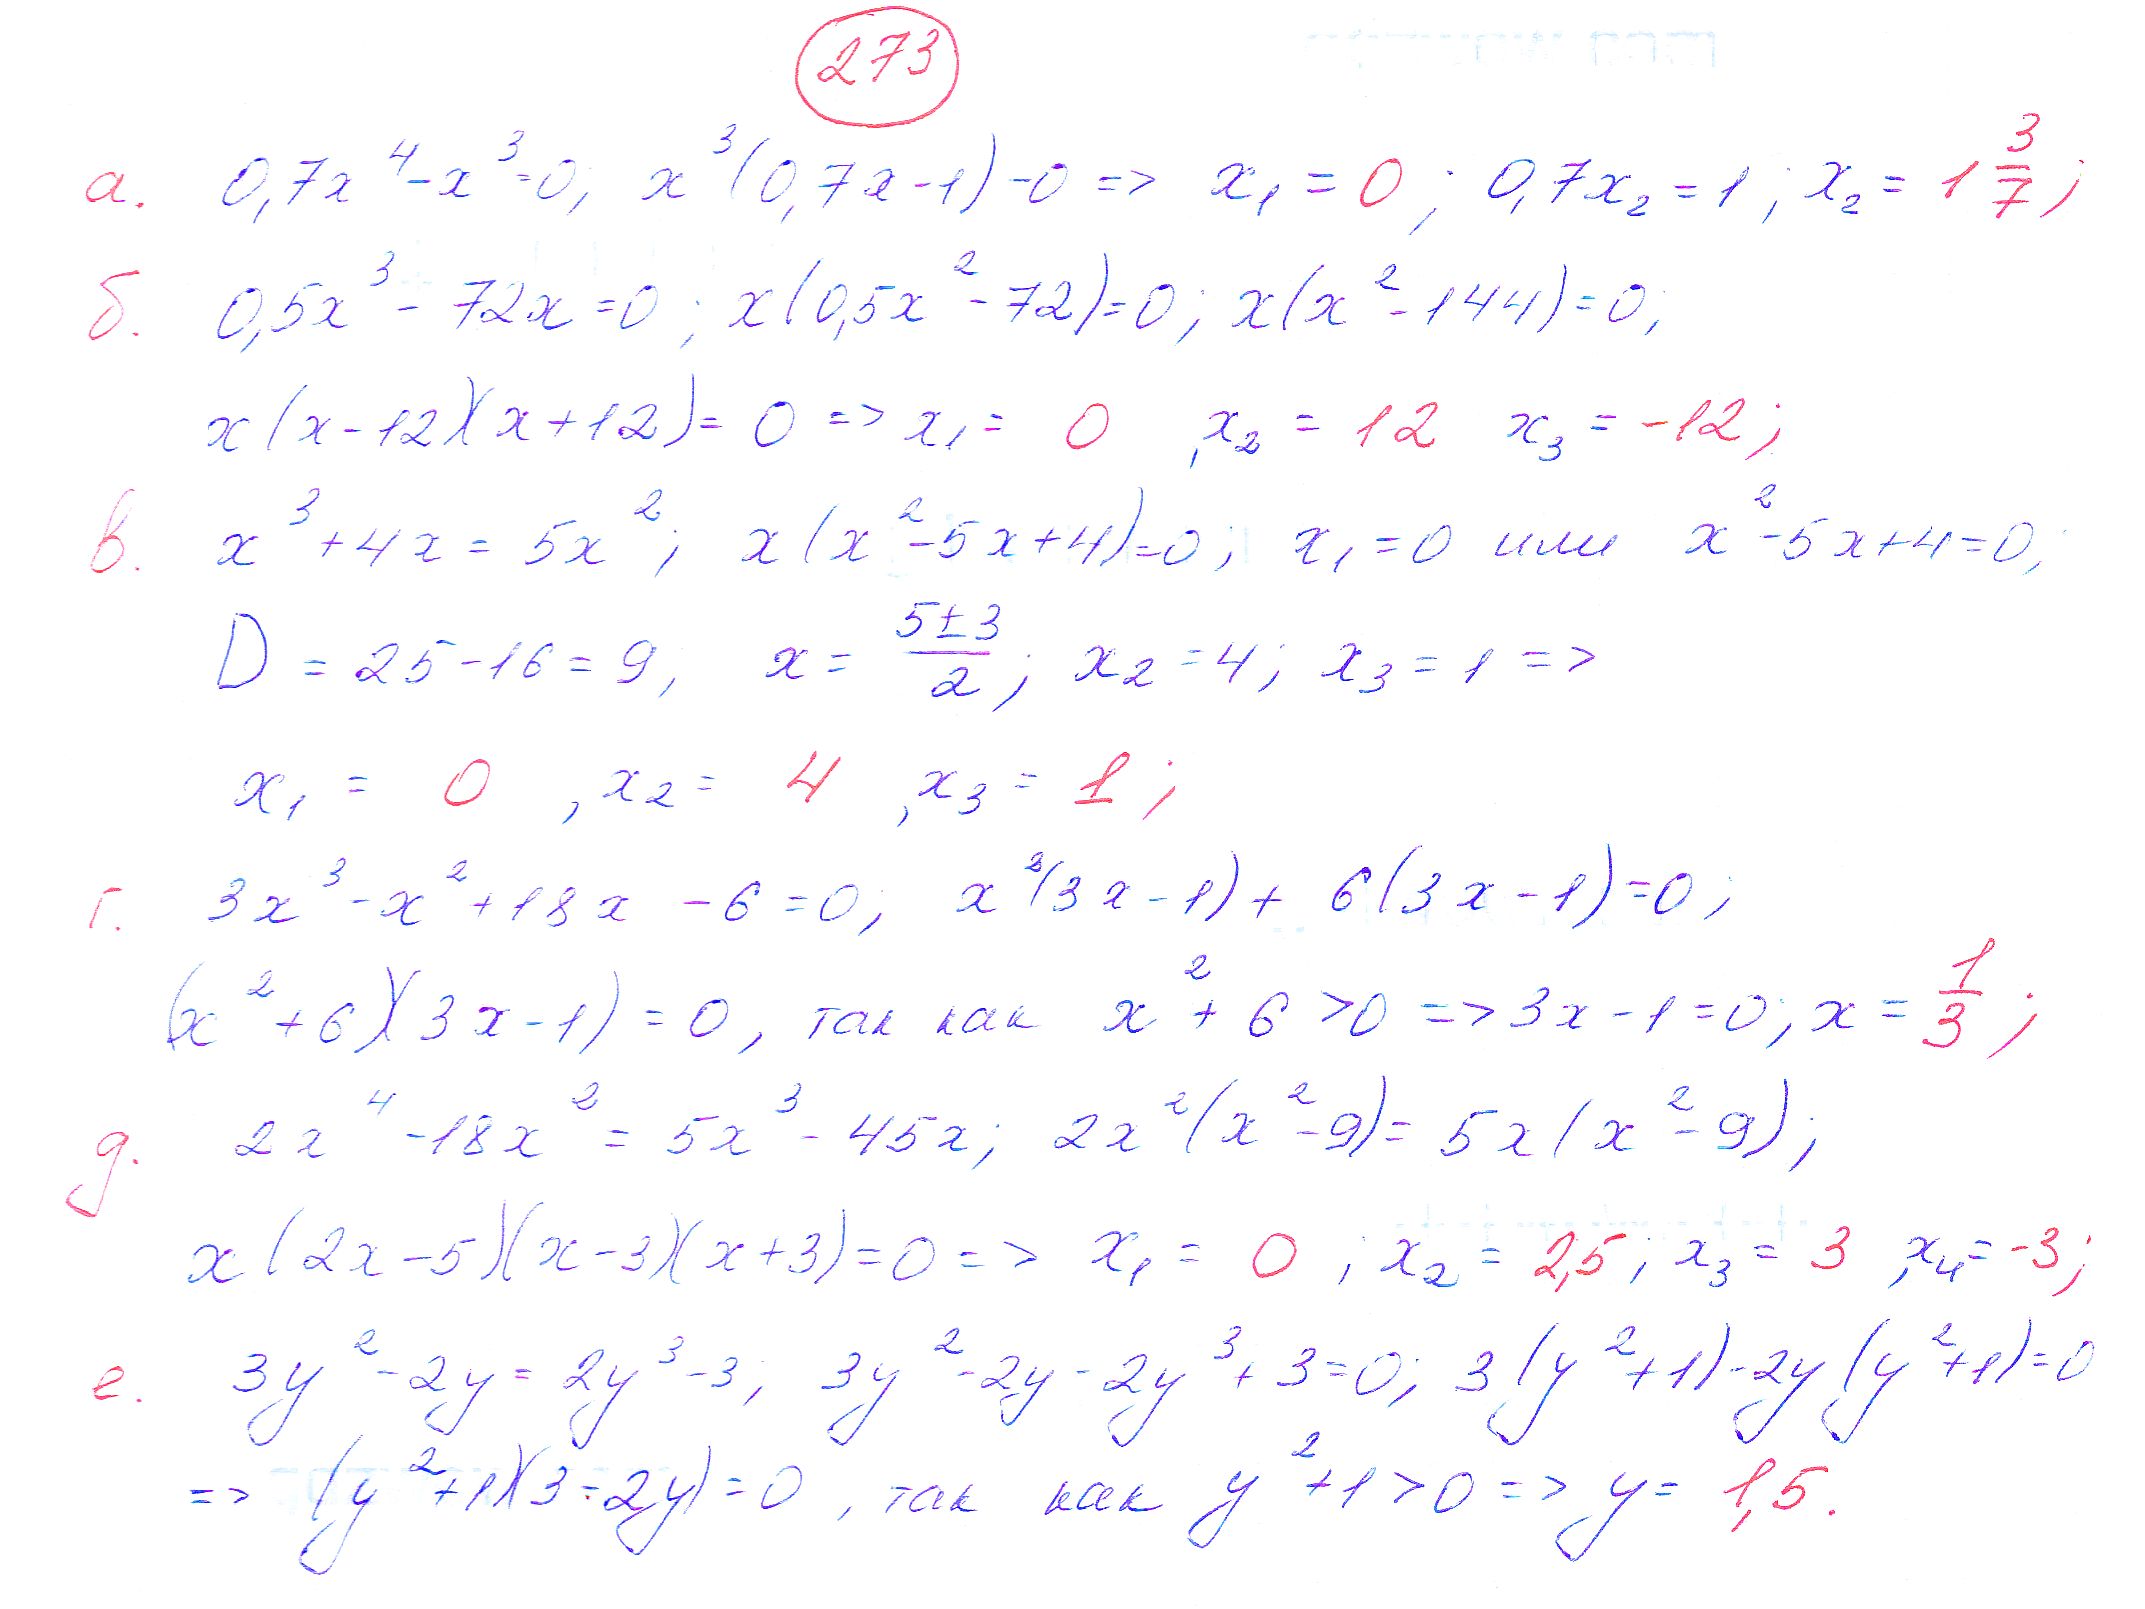 273
а. 0,7x⁴-x³=0; x³(0,7x-1)-0 => x₁ = 0; 0,7x₂=1; x₂= 1 3/7;
б. 0,5x³- 72x=0; x(0,5x²-72)=0; x(x²-144)=0;
x(x-12)(x+12)= 0 => x₁= 0 ,x₂ = 12 x₃ = -12;
в. x³+4x = 5x²; x(x²-5x+4)=0; x₁=0 или x²-5x+4=0;
D = 25-16=9, x= (5±3)/2; x₂=4; x₃=1 =>
x₁ = 0 ,x₂= 4 ,x₃ = 1;
г. 3x³-x²+18x -6=0; x²(3x-1)+ 6(3x-1)=0;
(x²+6)(3x-1) = 0, так как x²+ 6 >0 => 3x-1=0; x = 1/3;
д. 2x⁴-18x² = 5x³- 45x; 2x²(x²-9)= 5x(x²-9);
x(2x-5)(x-3)(x+3)=0 => x₁ = 0 ; x₂ = 2,5; x₃ = 3 ,x₄= -3;
е. 3y²-2y= 2y³-3; 3y²-2y-2y³+3=0; 3(y²+1)-2y(y²+1)=0
=> (y²+1)(3-2y)=0 , так как y²+1>0 => y= 1,5.